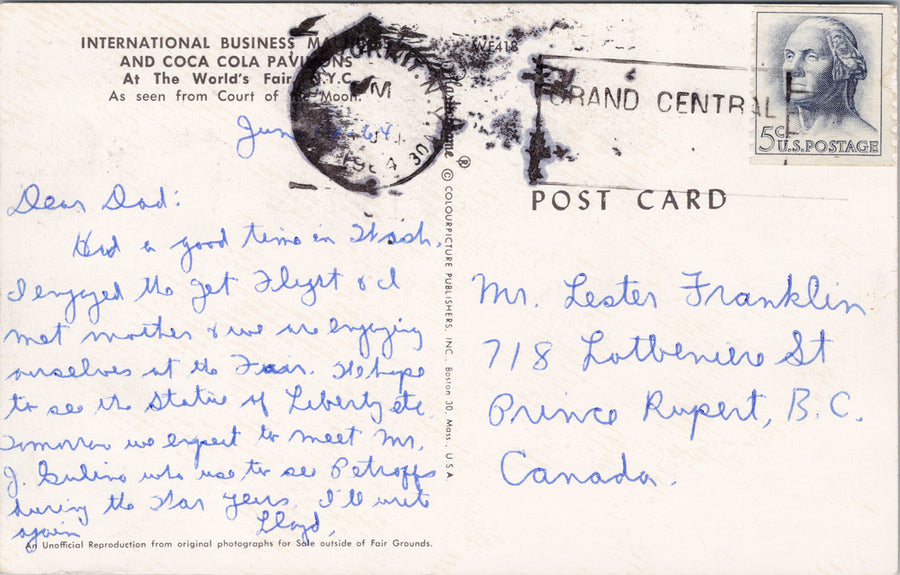 INTERNATIONAL BUSINESS
AND COCA COLA PAVILIONS
At The World's Fair N.Y.C.
As seen from Court of the Moon.
WF418
N.Y.
PM
1964
30
GRAND CENTRAL
5c U.S. POSTAGE
POST CARD
® © COLOURPICTURE PUBLISHERS, INC., Boston 30, Mass., U.S.A.
Jun 64
Dear Dad:
Had a good time in Wash.
I enjoyed the Jet Flight & I
met mother & we are enjoying
ourselves at the Fair. We hope
to see the Statue of Liberty etc.
Tomorrow we expect to meet Mr.
J. Gulino who use to see Petroffs
during the War Years. I'll write
again Lloyd.
Mr. Lester Franklin
718 Lotbeniere St
Prince Rupert, B.C.
Canada.
An Unofficial Reproduction from original photographs for Sale outside of Fair Grounds.